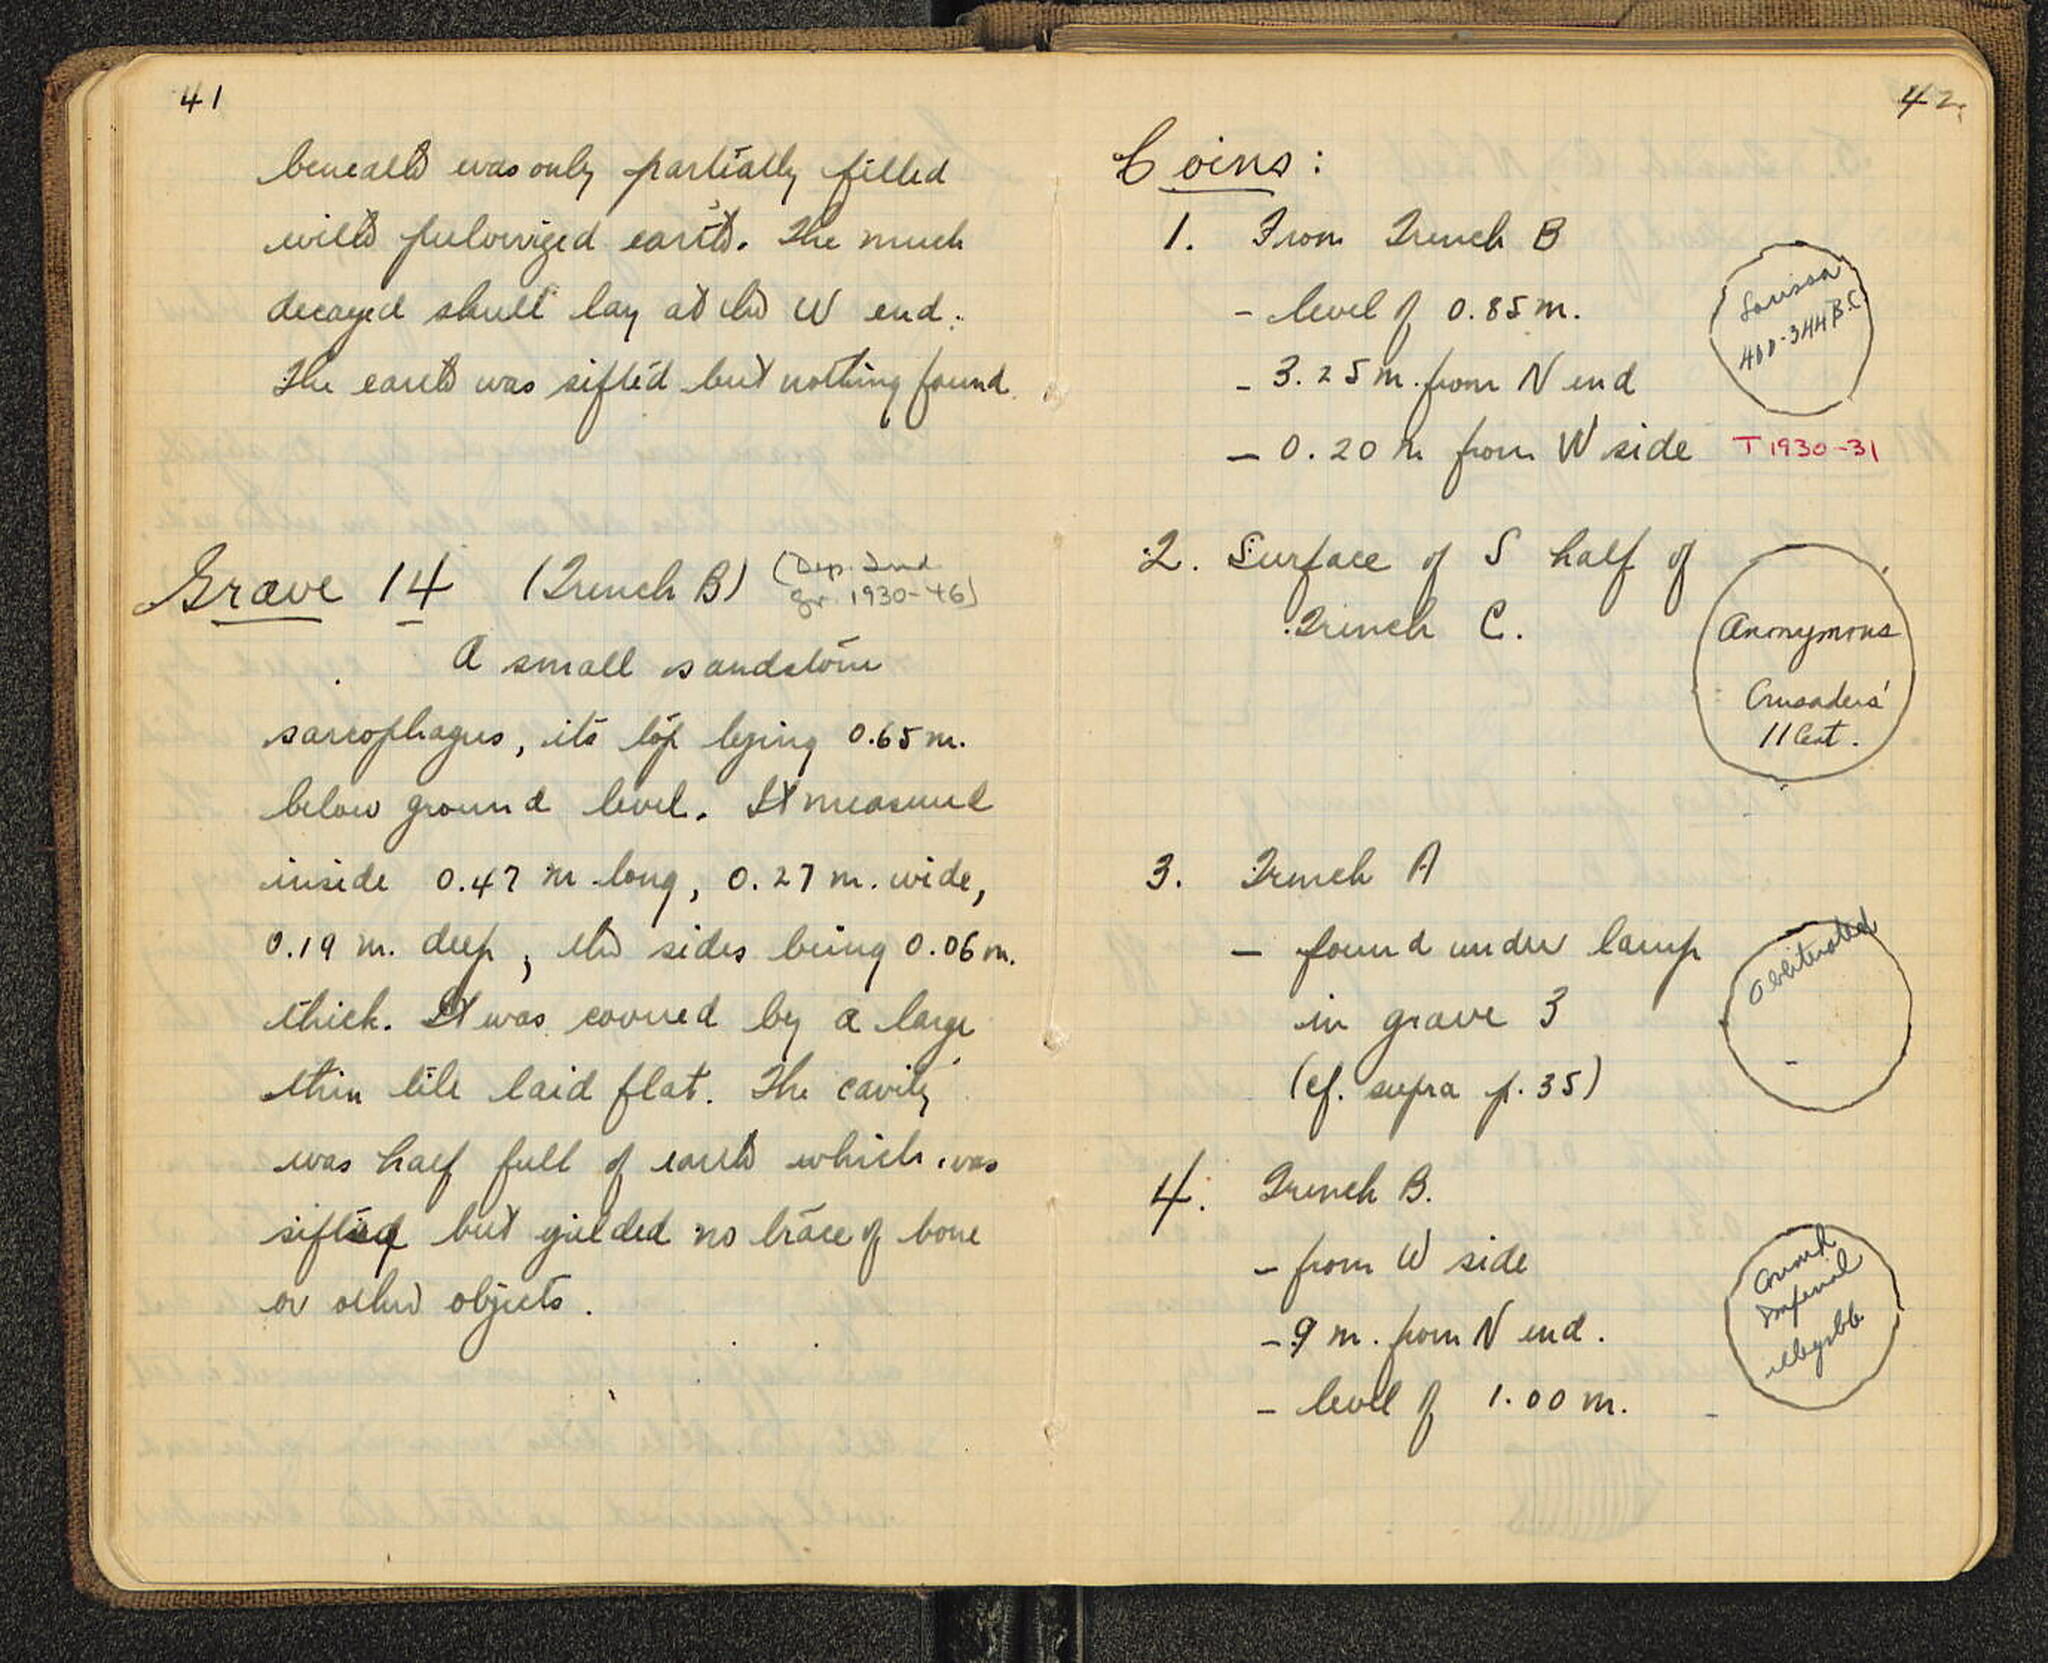 41
beneath was only partially filled
with pulverized earth. The much
decayed skull lay at the W end.
The earth was sifted but nothing found.
Grave 14 (Trench B) (Dep. Ind.
gr. 1930-46)
A small sandstone
sarcophagus, its top lying 0.65 m.
below ground level. It measured
inside 0.47 m long, 0.27 m. wide,
0.19 m. deep, the sides being 0.06 m.
thick. It was covered by a large
thin tile laid flat. The cavity
was half full of earth which was
sifted but yielded no trace of bone
or other objects.
42
Coins:
1. From Trench B
- level of 0.85 m.
- 3.25 m. from N end
- 0.20 m from W side
Larissa
400-344 B.C.
T 1930-31
2. Surface of S half of
Trench C.
Anonymous
Crusaders'
11 Cent.
3. Trench A
- found under lamp
in grave 3
(cf. supra p. 35)
Obliterated
4. Trench B.
- from W side
- 9 m. from N end.
- level of 1.00 m.
Corinth
Imperial
illegible